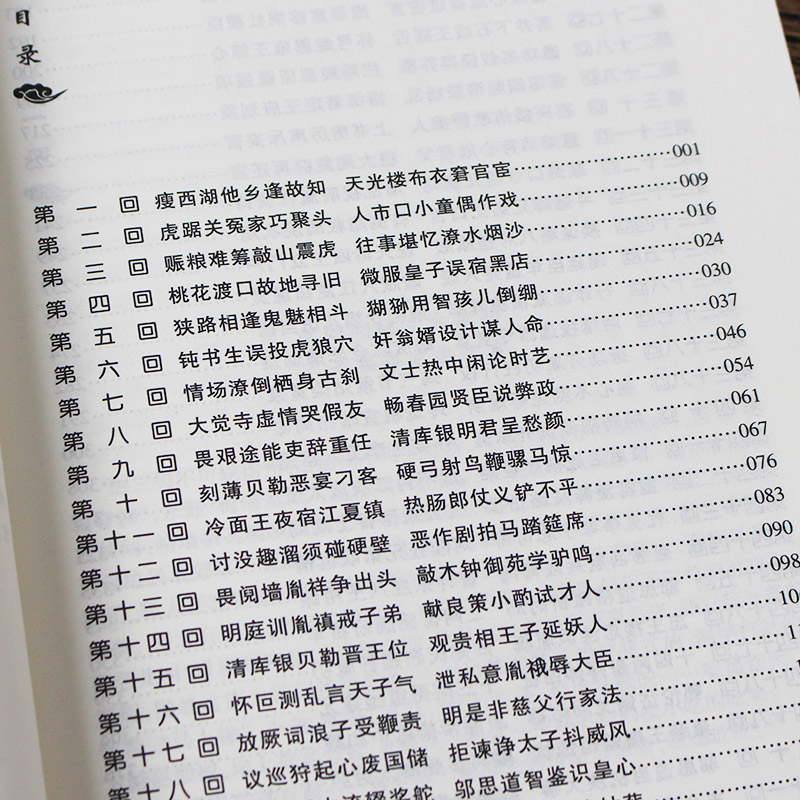 目录
第一回 瘦西湖他乡逢故知 天光楼布衣窘官宦 001
第二回 虎踞关冤家巧聚头 人市口小童偶作戏 009
第三回 赈粮难筹敲山震虎 往事堪忆潦水烟沙 016
第四回 桃花渡口故地寻旧 微服皇子误宿黑店 024
第五回 狭路相逢鬼魅相斗 猢狲用智孩儿倒绷 030
第六回 钝书生误投虎狼穴 奸翁婿设计谋人命 037
第七回 情场潦倒栖身古刹 文士热中闲论时艺 046
第八回 大觉寺虚情哭假友 畅春园贤臣说弊政 054
第九回 畏艰途能吏辞重任 清库银明君呈愁颜 061
第十回 刻薄贝勒恶宴刁客 硬弓射鸟鞭骡马惊 067
第十一回 冷面王夜宿江夏镇 热肠郎仗义铲不平 076
第十二回 讨没趣溜须碰硬壁 恶作剧拍马踏筵席 083
第十三回 畏阋墙胤祥争出头 敲木钟御苑学驴鸣 090
第十四回 明庭训胤禛戒子弟 献良策小酌试才人 098
第十五回 清库银贝勒晋王位 观贵相王子延妖人
第十六回 怀叵测乱言天子气 泄私意胤禩辱大臣
第十七回 放厥词浪子受鞭责 明是非慈父行家法
第十八回 议巡狩起心废国储 拒谏诤太子抖威风
邬思道智鉴识皇心